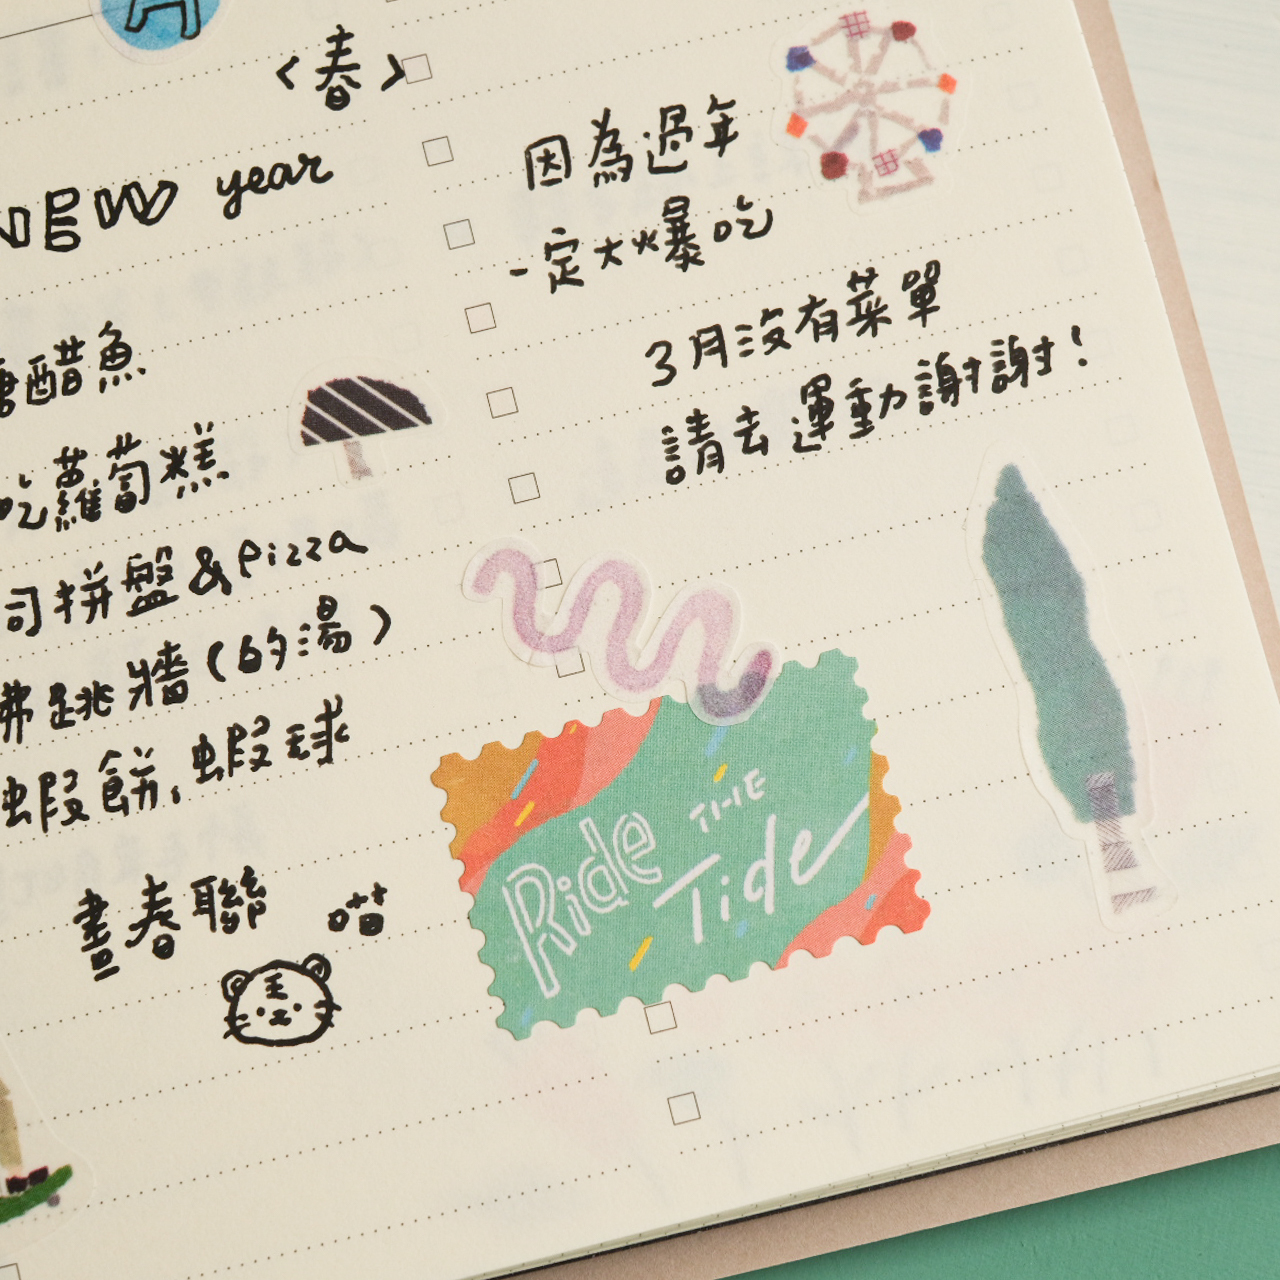 <春>
NEW year
糖醋魚
吃蘿蔔糕
司拼盤&pizza
佛跳牆(的湯)
蝦餅,蝦球
畫春聯
喵
因為過年
一定大爆吃
3月沒有菜單
請去運動謝謝!
Ride THE
Tide